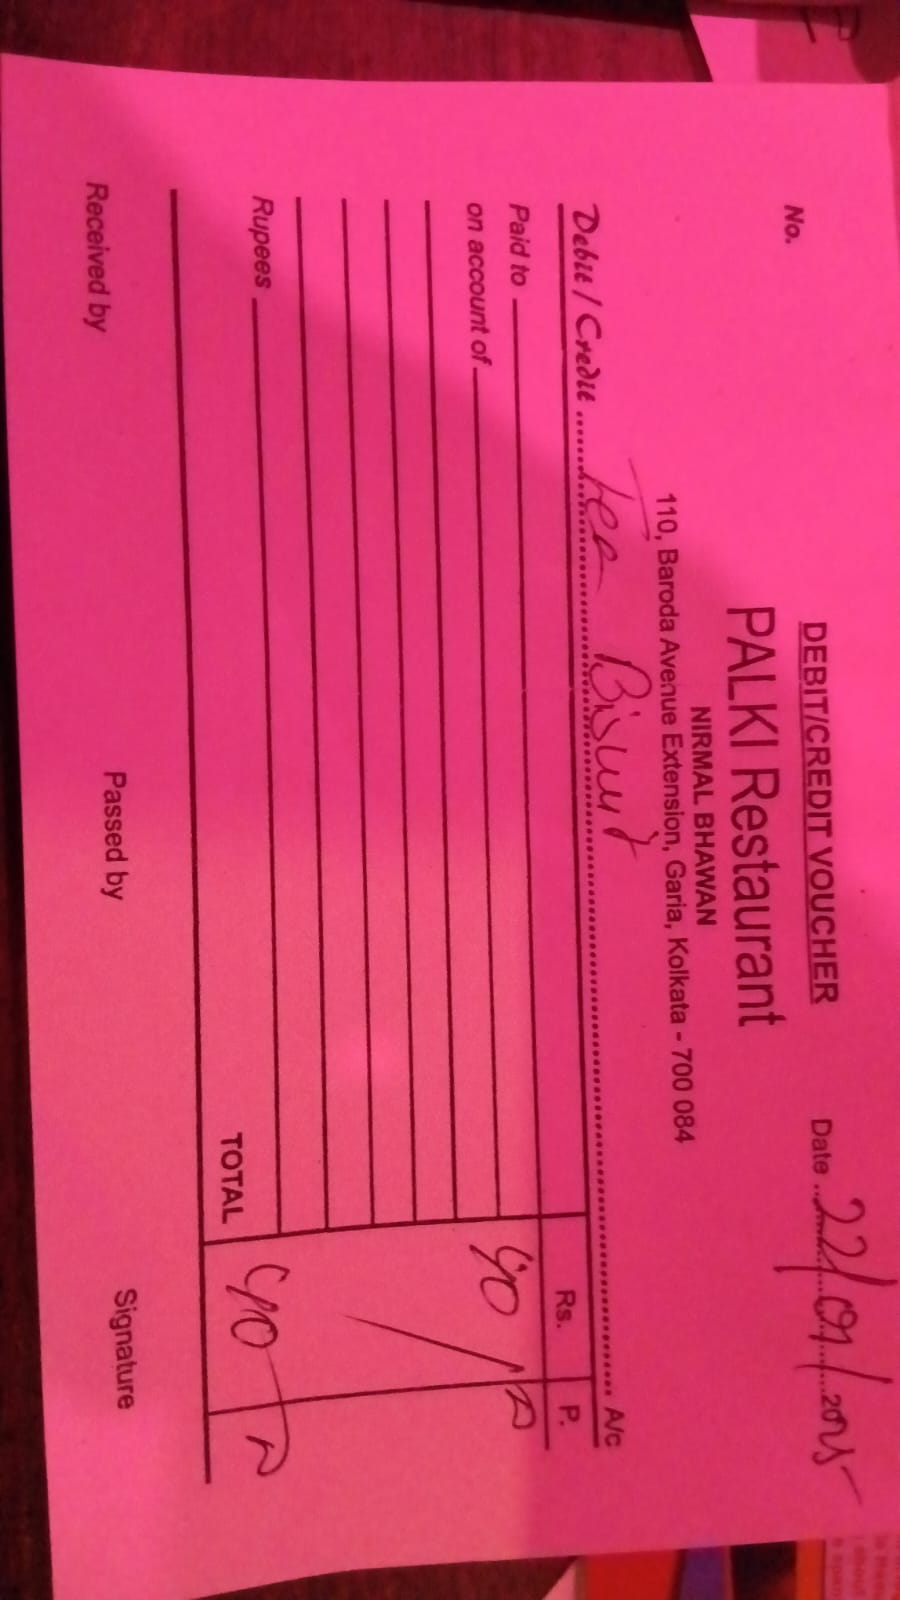 DEBIT/CREDIT VOUCHER
No. Date 22/09/2025
PALKI Restaurant
NIRMAL BHAWAN
110, Baroda Avenue Extension, Garia, Kolkata - 700 084
Debit / Credit Tea Biscuit A/c
Rs. P.
Paid to
on account of
Rupees
TOTAL
Received by Passed by Signature